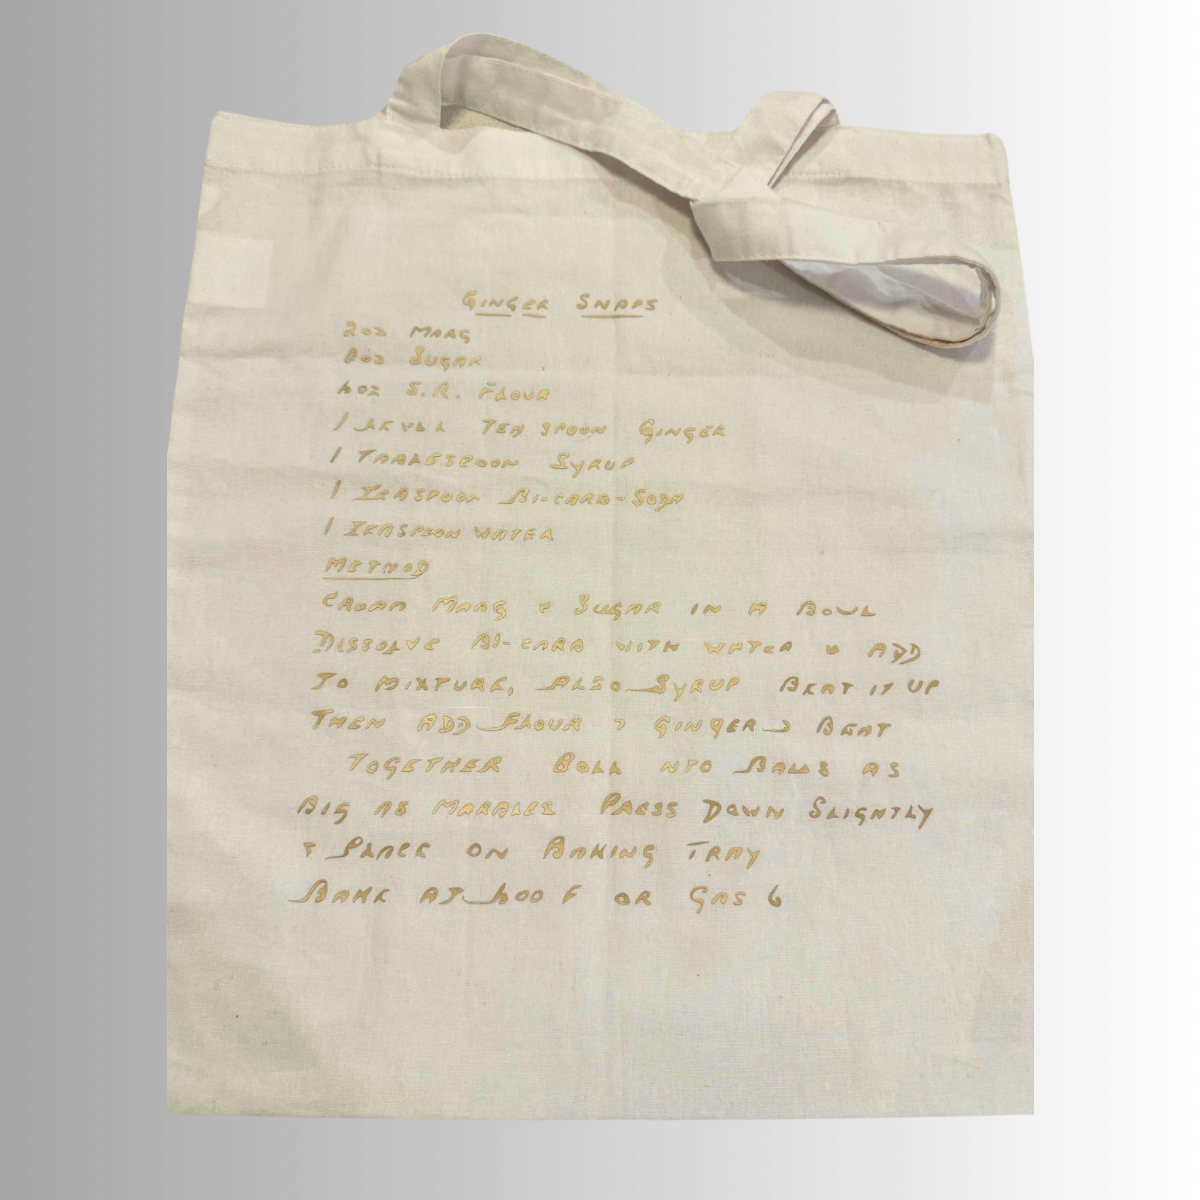 GINGER SNAPS
2oz MARG
8oz SUGAR
6oz S.R. FLOUR
1 LEVEL TEA SPOON GINGER
1 TABLESPOON SYRUP
1 TEASPOON BI-CARB-SODA
1 TEASPOON WATER
METHOD
CREAM MARG & SUGAR IN A BOWL
DISSOLVE BI-CARB WITH WATER & ADD
TO MIXTURE, ALSO SYRUP BEAT IT UP
THEN ADD FLOUR & GINGER & BEAT
TOGETHER ROLL INTO BALLS AS
BIG AS MARBLES PRESS DOWN SLIGHTLY
& PLACE ON BAKING TRAY
BAKE AT 600 F OR GAS 6